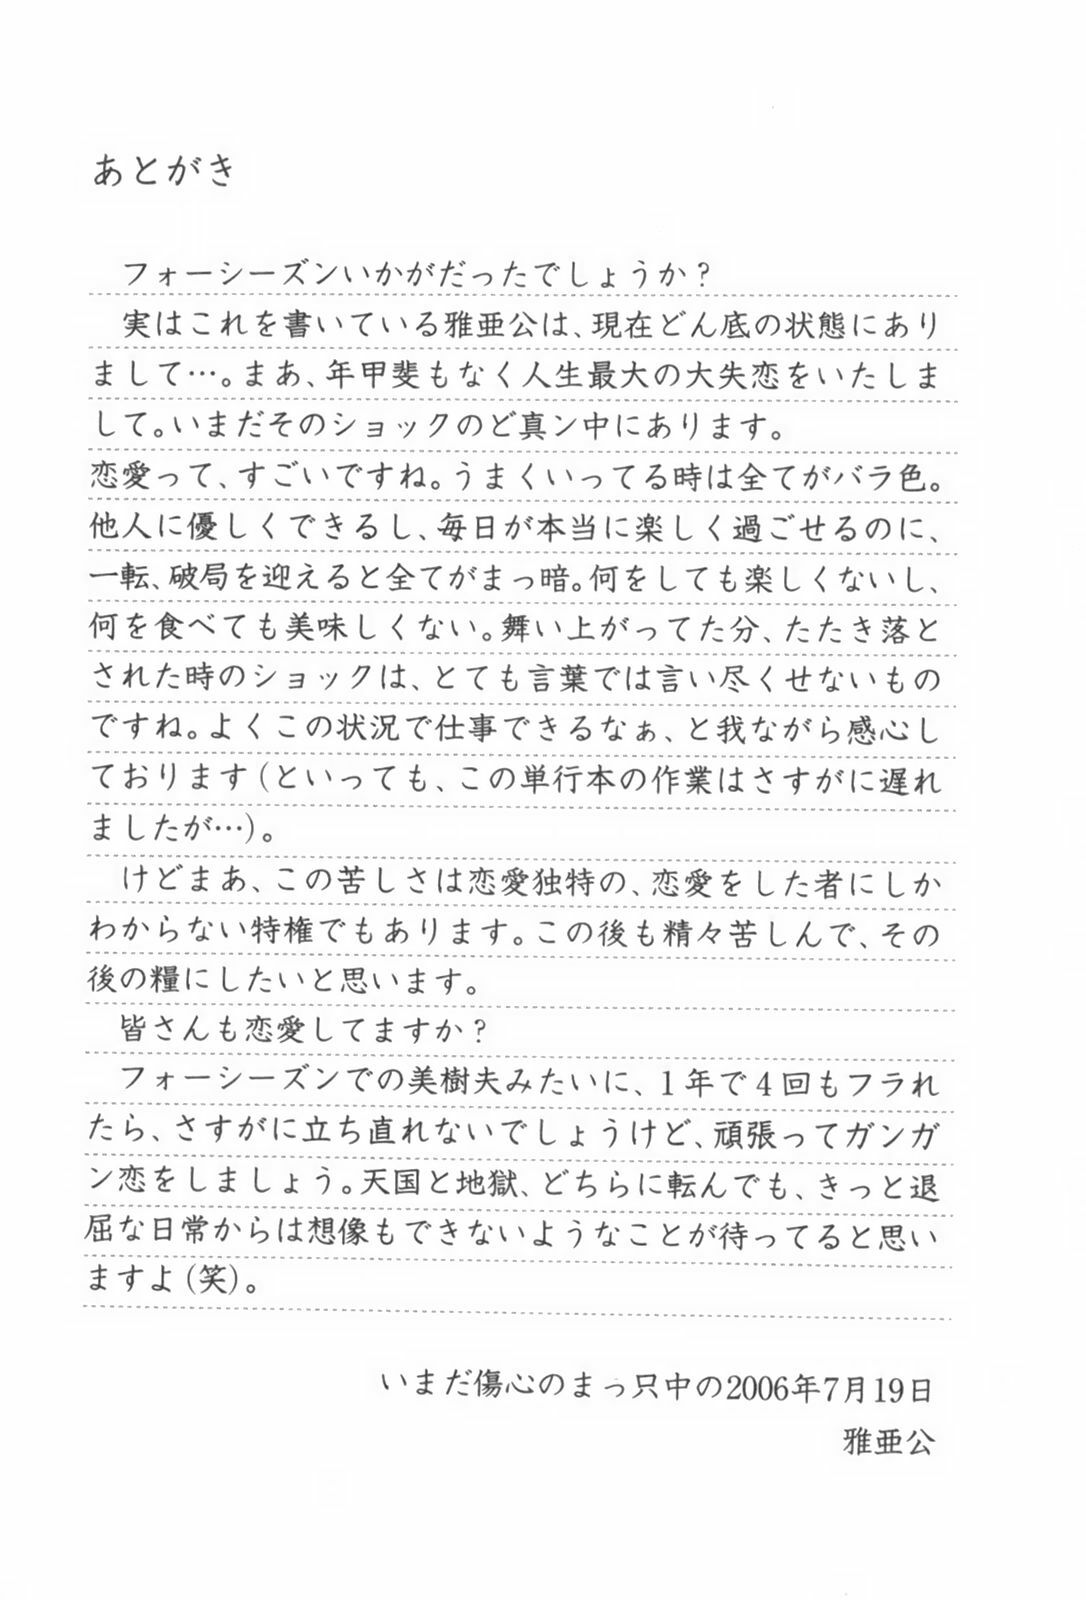 あとがき
フォーシーズンいかがだったでしょうか?
実はこれを書いている雅亜公は、現在どん底の状態にあり
まして…。まあ、年甲斐もなく人生最大の大失恋をいたしま
して。いまだそのショックのど真ン中にあります。
恋愛って、すごいですね。うまくいってる時は全てがバラ色。
他人に優しくできるし、毎日が本当に楽しく過ごせるのに、
一転、破局を迎えると全てがまっ暗。何をしても楽しくないし、
何を食べても美味しくない。舞い上がってた分、たたき落と
された時のショックは、とても言葉では言い尽くせないもの
ですね。よくこの状況で仕事できるなぁ、と我ながら感心し
ております(といっても、この単行本の作業はさすがに遅れ
ましたが…)。
けどまあ、この苦しさは恋愛独特の、恋愛をした者にしか
わからない特権でもあります。この後も精々苦しんで、その
後の糧にしたいと思います。
皆さんも恋愛してますか?
フォーシーズンでの美樹夫みたいに、1年で4回もフラれ
たら、さすがに立ち直れないでしょうけど、頑張ってガンガ
ン恋をしましょう。天国と地獄、どちらに転んでも、きっと退
屈な日常からは想像もできないようなことが待ってると思い
ますよ(笑)。
いまだ傷心のまっ只中の2006年7月19日
雅亜公